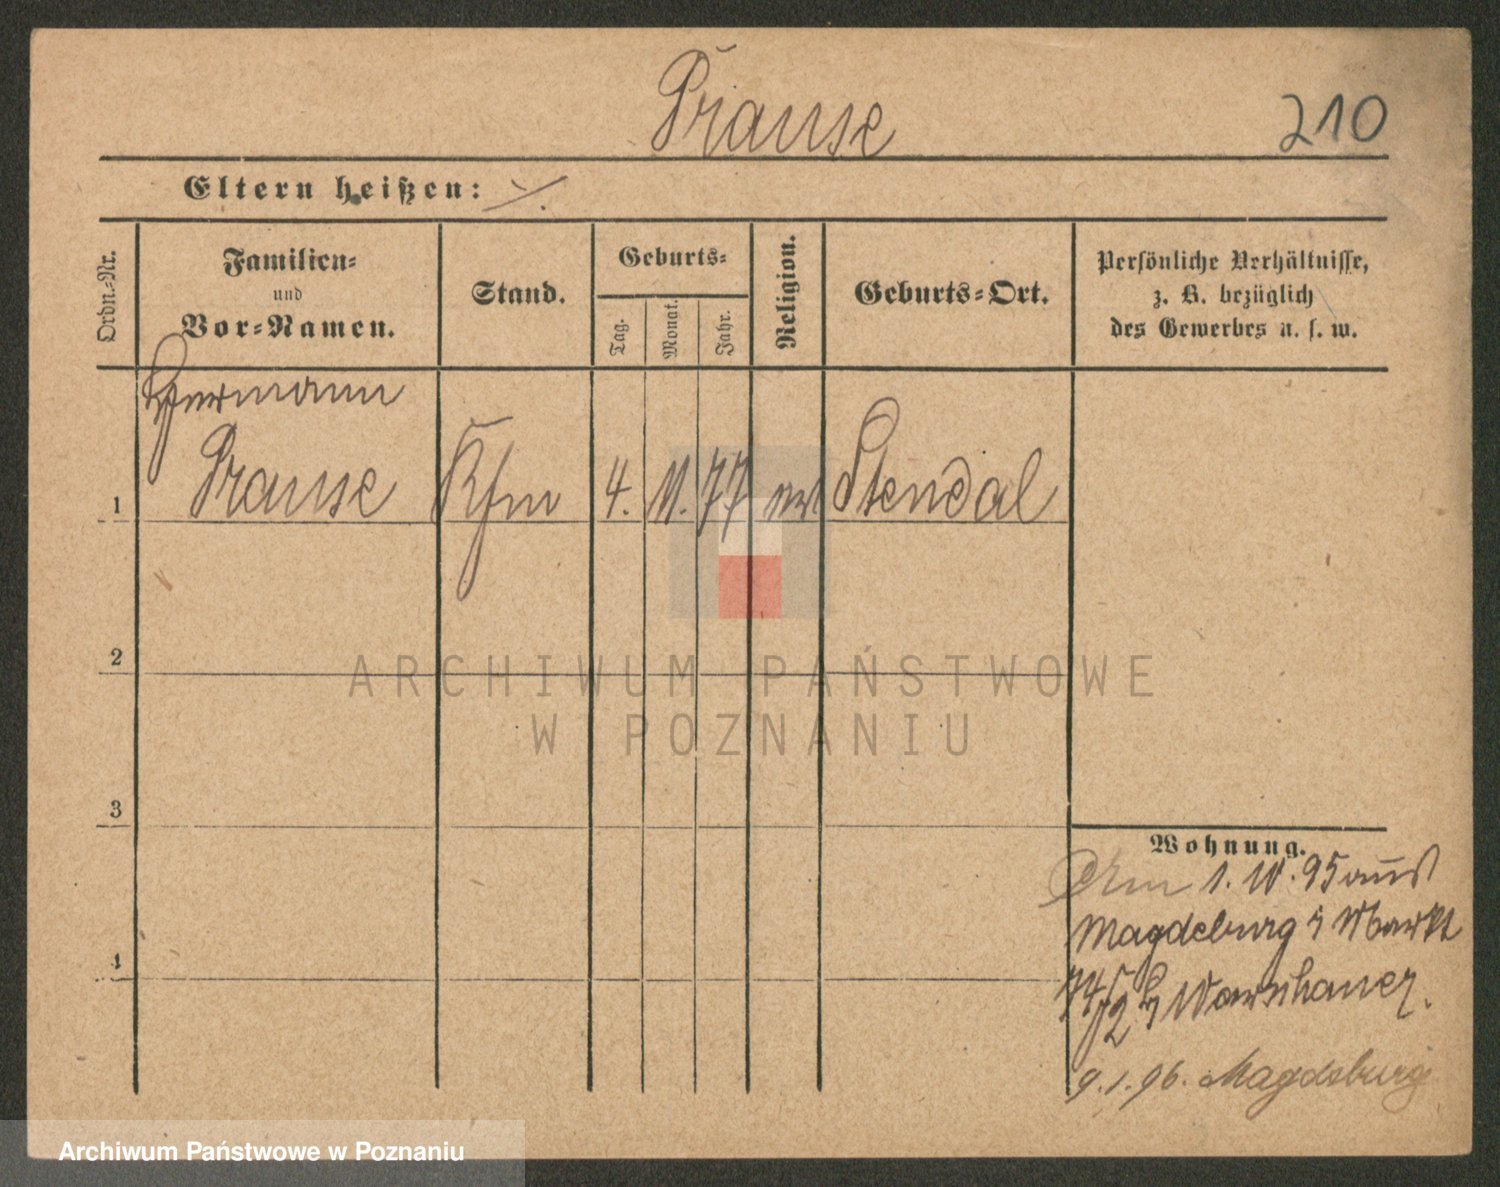 Prause
210
Eltern heißen: ./.
Ordn.-Nr.
Familien-
und
Vor-Namen.
Stand.
Geburts-
Tag.
Monat.
Jahr.
Religion.
Geburts-Ort.
Persönliche Verhältnisse,
z. B. bezüglich
des Gewerbes u. s. w.
Hermann
1 Prause Kfm 4. 11. 77 Stendal
2
3
4
Wohnung.
1. 10. 95 aus
Magdeburg Markt
74 Warschauer.
9. 1. 96. Magdeburg
ARCHIWUM PAŃSTWOWE
W POZNANIU
Archiwum Państwowe w Poznaniu